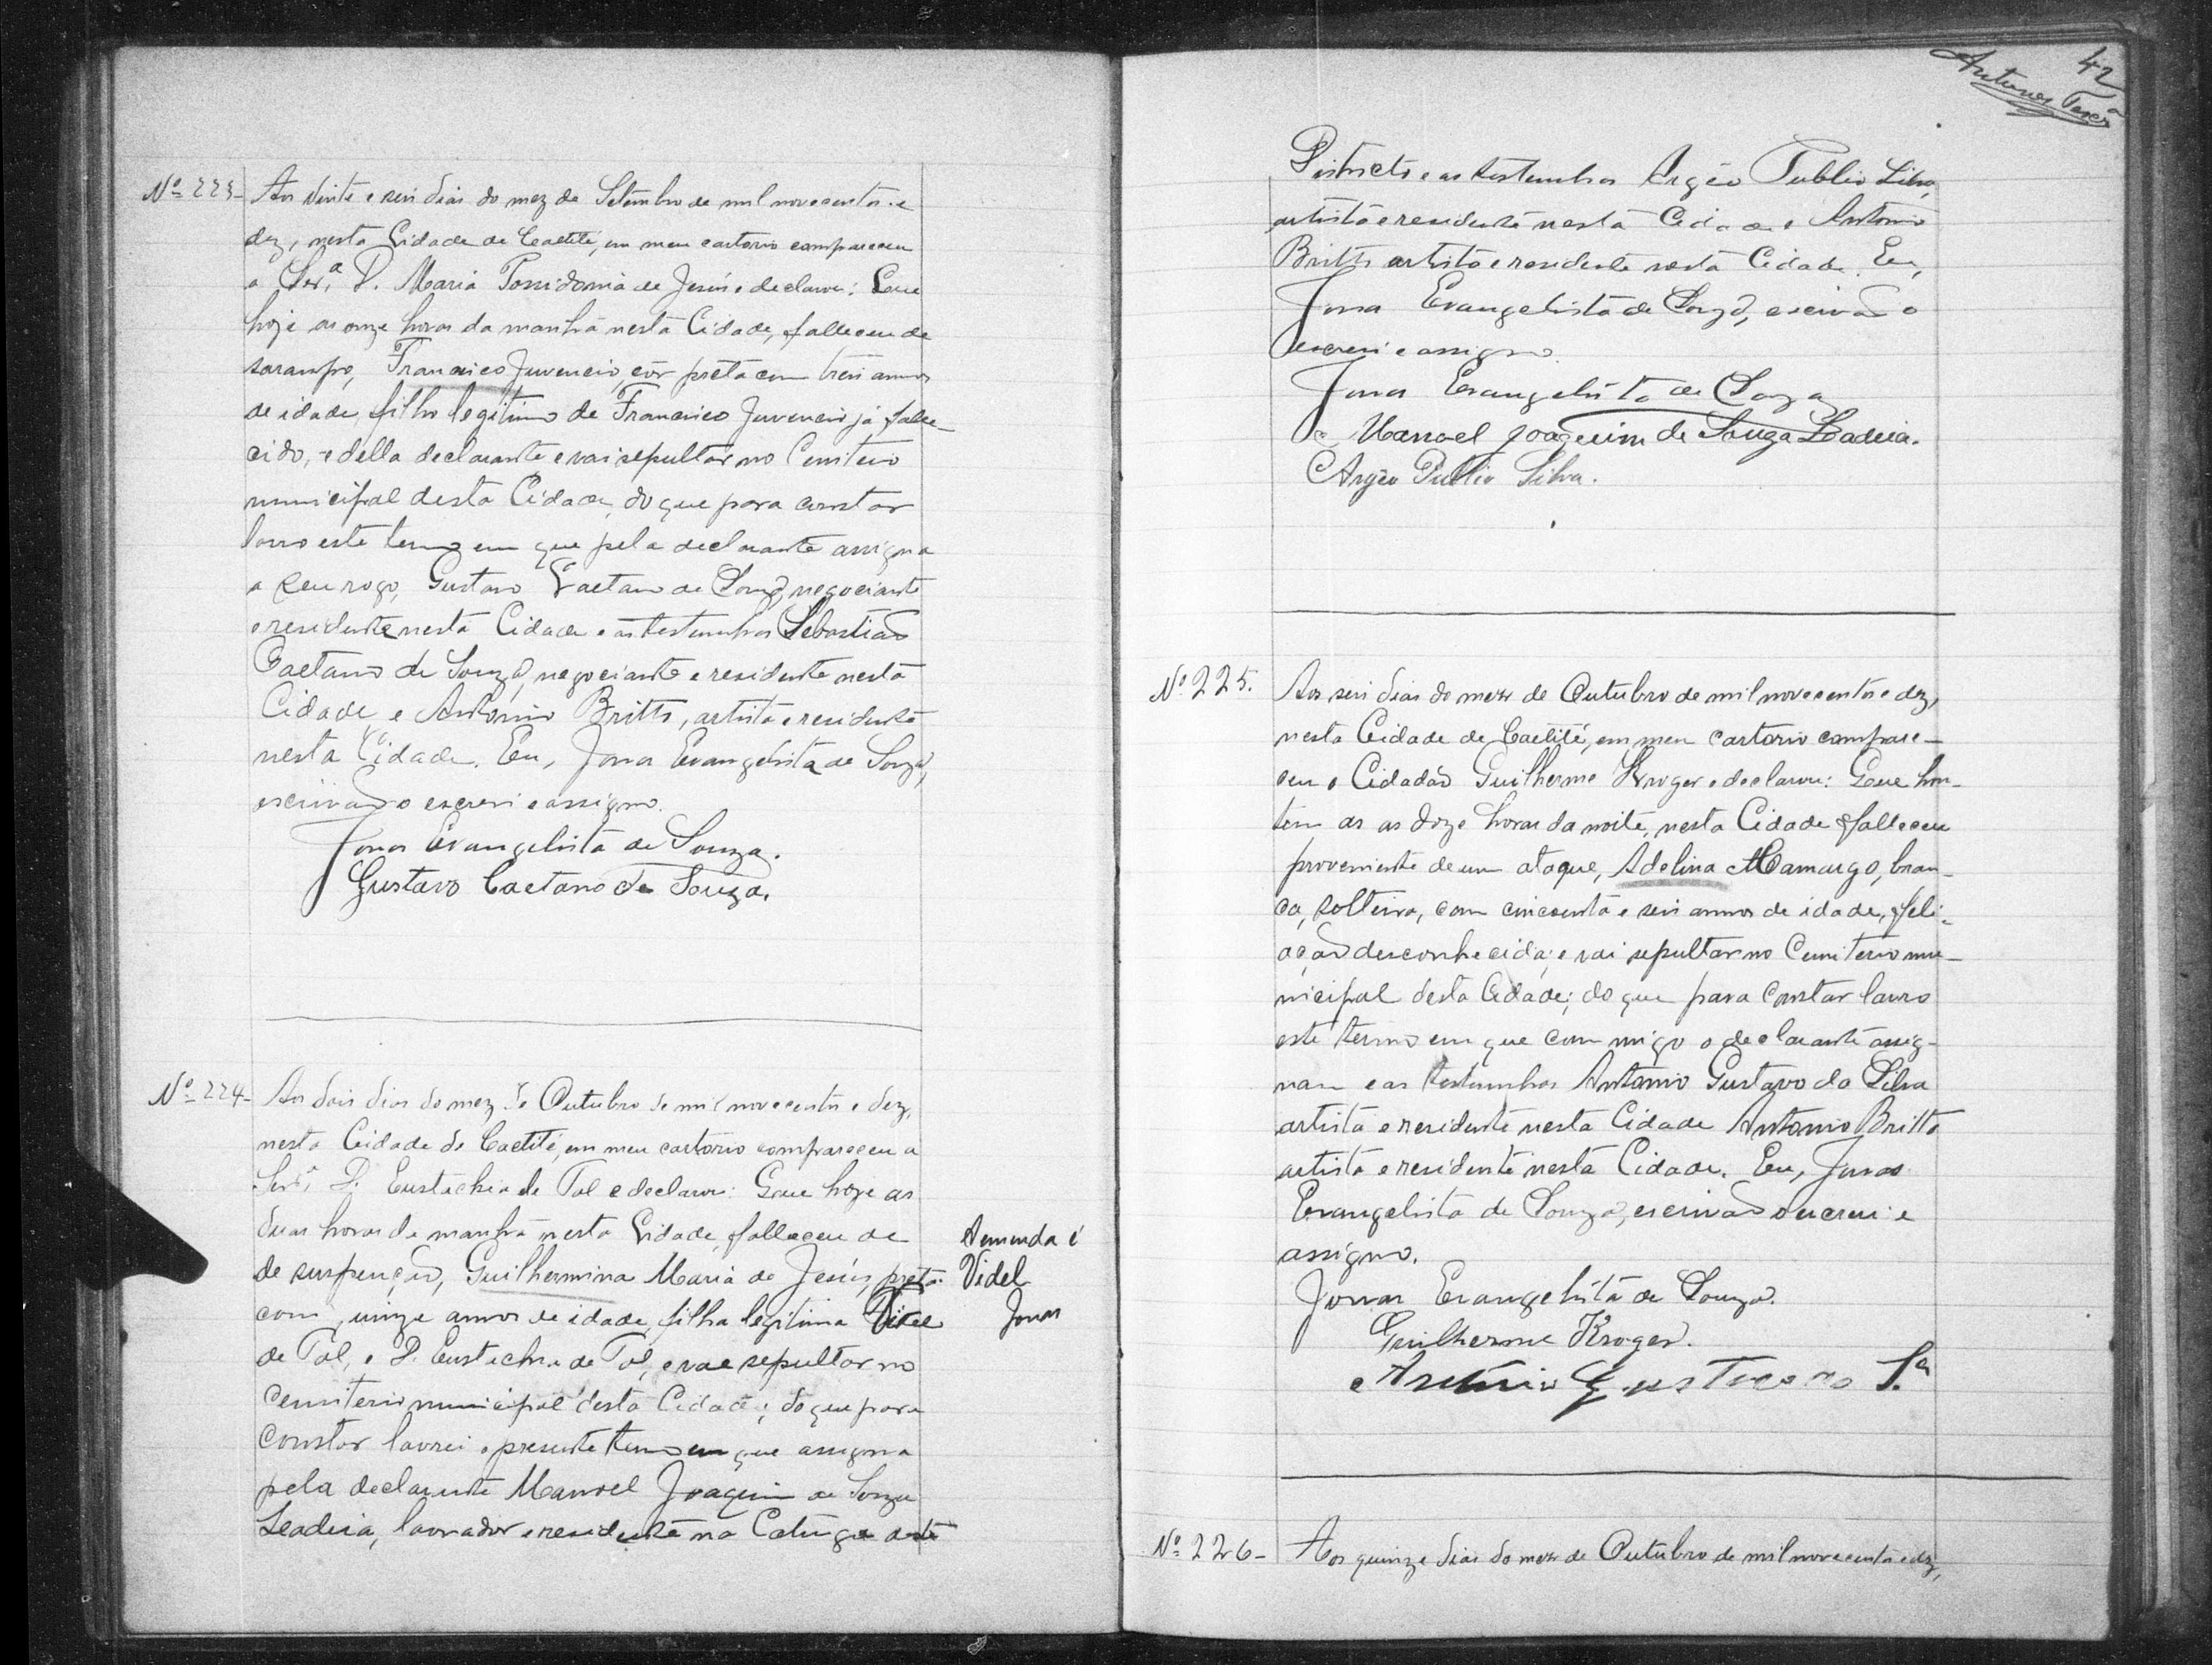 Nº 223- Aos vinte e seis dias do mez de Setembro de mil novecentos e
dez, nesta Cidade de Caetité, em meu cartorio compareceu
a Snrª D. Maria Possidonia de Jesús e declarou: Que
hoje as onze horas da manhã nesta Cidade, falleceu de
sarampo, Francisco Juvencio, côr preta com tres annos
de idade, filho legitimo de Francisco Juvencio já falle-
cido, e della declarante e vai sepultar no Cemiterio
municipal desta Cidade, do que para constar
lavro este termo em que pela declarante assigna
a seu rogo, Gustavo Caetano de Souza, negociante
e residente nesta Cidade e as testemunhas Sebastião
Caetano de Souza, negociante e residente nesta
Cidade, e Antonio Britto, artista e residente
nesta Cidade. Eu, Jonas Evangelista de Souza,
escrivão o escrevi e assigno.
Jonas Evangelista de Souza.
Gustavo Caetano de Souza.
Nº 224- Aos dois dias do mez de Outubro de mil novecentos e dez,
nesta Cidade de Caetité, em meu cartorio compareceu a
Snrª D. Eustachia de Tal e declarou: Que hoje as
duas horas da manhã nesta Cidade, falleceu de
de suspenção, Guilhermina Maria de Jesús, preta
com quinze annos de idade, filha legitima Videl
de Tal, e D. Eustachia de Tal, e vae sepultar no
cemiterio municipal desta Cidade; do que para
constar lavrei o presente termo em que assigna
pela declarante Manoel Joaquim de Souza
Ladeia, lavrador e residente na Catinga deste
Aemenda é
Videl
Jonas
42
Antunes
Districto e as testemunhas Argêo Publio Silva,
artista e residente nesta Cidade e Antonio
Britto artista e residente nesta Cidade. Eu,
Jonas Evangelista de Souza, escrivão o
escrevi e assigno.
Jonas Evangelista de Souza
Manoel Joaquim de Souza Ladeia.
Argêo Publio Silva.
Nº 225. Aos seis dias do mez de Outubro de mil novecentos e dez,
nesta Cidade de Caetité, em meu cartorio compare-
ceu o Cidadão Guilherme Kroger e declarou: Que hon-
tem as as doze horas da noite, nesta Cidade falleceu
proveniente de um ataque, Adelina Camargo, bran-
ca, solteira, com cincoenta e seis annos de idade, fili-
ação desconhecida; e vai sepultar no Cemiterio mu-
nicipal desta Cidade; do que para constar lavro
este termo em que com migo o declarante assig-
nam e as testemunhas Antonio Gustavo da Silva
artista e residente nesta Cidade Antonio Britto
artista e residente nesta Cidade. Eu, Jonas
Evangelista de Souza, escrivão o escrevi e
assigno.
Jonas Evangelista de Souza.
Guilherme Kroger.
Antonio Gustavo Sª
Nº 226- Aos quinze dias do mez de Outubro de mil novecentos e dez,